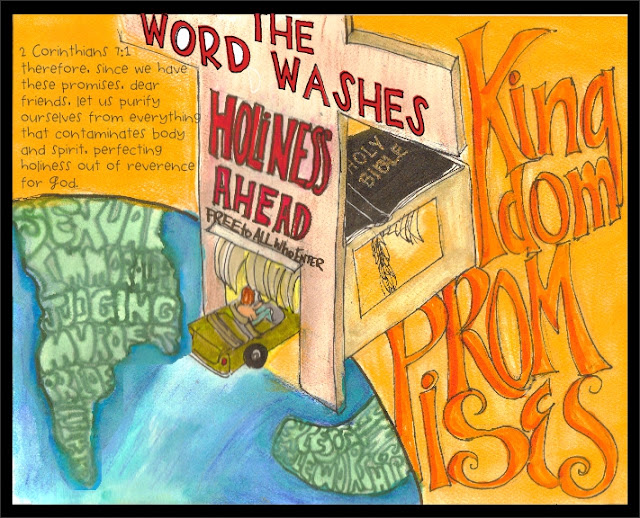 2 Corinthians 7:1
therefore, since we have
these promises, dear
friends, let us purify
ourselves from everything
that contaminates body
and spirit, perfecting
holiness out of reverence
for God.
THE
WORD WASHES
HOLINESS
AHEAD
FREE to ALL Who ENTER
HOLY
BIBLE
King
dom
PROM
isEs
SEXUAL
JUDGING
MURDER
PRIDE